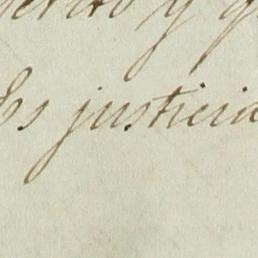 y
Es justicia